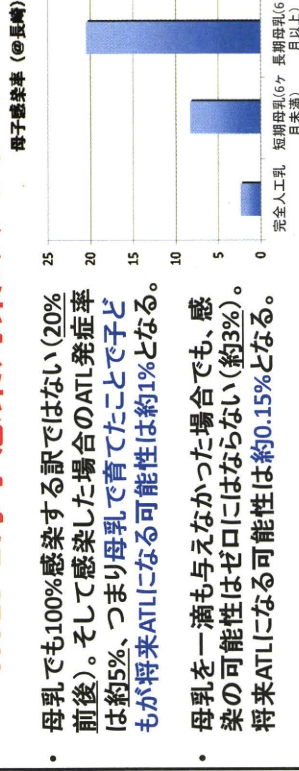 母子感染率（@長崎）
• 母乳でも100%感染する訳ではない（20%
前後）。そして感染した場合のATL発症率
は約5%、つまり母乳で育てたことで子ど
もが将来ATLになる可能性は約1%となる。
• 母乳を一滴も与えなかった場合でも、感
染の可能性はゼロにはならない（約3%）。
将来ATLになる可能性は約0.15%となる。
25
20
15
10
5
0
完全人工乳
短期母乳(6ヶ
月未満)
長期母乳(6
月以上)